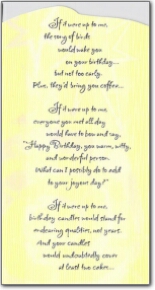 If it were up to me,
the song of birds
would wake you
on your birthday...
but not too early.
Plus, they'd bring you coffee...
If it were up to me,
everyone you met all day
would have to bow and say,
"Happy Birthday, you warm, witty,
and wonderful person.
What can I possibly do to add
to your joyous day?"
If it were up to me,
birthday candles would stand for
endearing qualities, not years.
And your candles
would undoubtedly cover
at least two cakes...